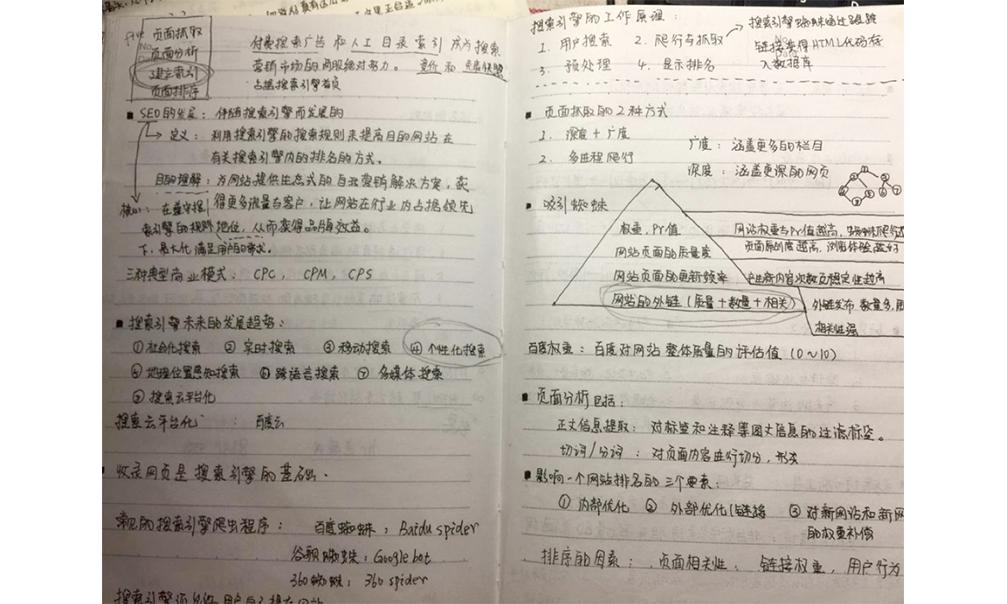 页面抓取
页面分析
建立索引
页面排序
付费搜索广告和人工目录索引成为搜索
营销市场的两股绝对势力。竞价和
占据搜索引擎首页
SEO的发展：伴随搜索引擎而发展的
定义：利用搜索引擎的搜索规则来提高目的网站在
有关搜索引擎内的排名的方式。
目的理解：为网站提供生态式的自我营销解决方案，
得更多流量与客户，让网站在行业内占据领先
地位，从而获得品牌效益。
核心：在遵守搜
索引擎的规则
下，最大化满足用户的需求。
三种典型商业模式：CPC，CPM，CPS
搜索引擎未来的发展趋势：
①社会化搜索 ②实时搜索 ③移动搜索 ④个性化搜索
⑤地理位置感知搜索 ⑥跨语言搜索 ⑦多媒体搜索
⑧搜索云平台化
搜索云平台化：百度云
收录网页是搜索引擎的基础.
常见的搜索引擎爬虫程序：百度蜘蛛：Baidu spider
谷歌蜘蛛：Google bot
360蜘蛛：360 spider
搜索引擎的工作原理：
1. 用户搜索 2. 爬行与抓取
搜索引擎蜘蛛通过跟踪
链接获得HTML代码存
入数据库
3. 预处理 4. 显示排名
页面抓取的2种方式
1. 深度+广度
2. 多进程爬行
广度：涵盖更多的栏目
深度：涵盖更深的网页
吸引蜘蛛
权重，Pr值
网站权重与Pr值越高，
网站页面的质量度
页面原创度越高，浏览体验越好
网站页面的更新频率
网站的外链（质量+数量+相关）
外链发布 数量多，
相关性强
百度权重：百度对网站整体质量的评估值（0~10）
页面分析包括：
正文信息提取：对标签和注释等图文信息的过滤标签。
切词/分词：对页面内容进行切分，
影响一个网站排名的三个要素：
①内部优化 ②外部优化（链接 ③对新网站和新网
的权重补偿
排序的因素：页面相关性、链接权重，用户行为